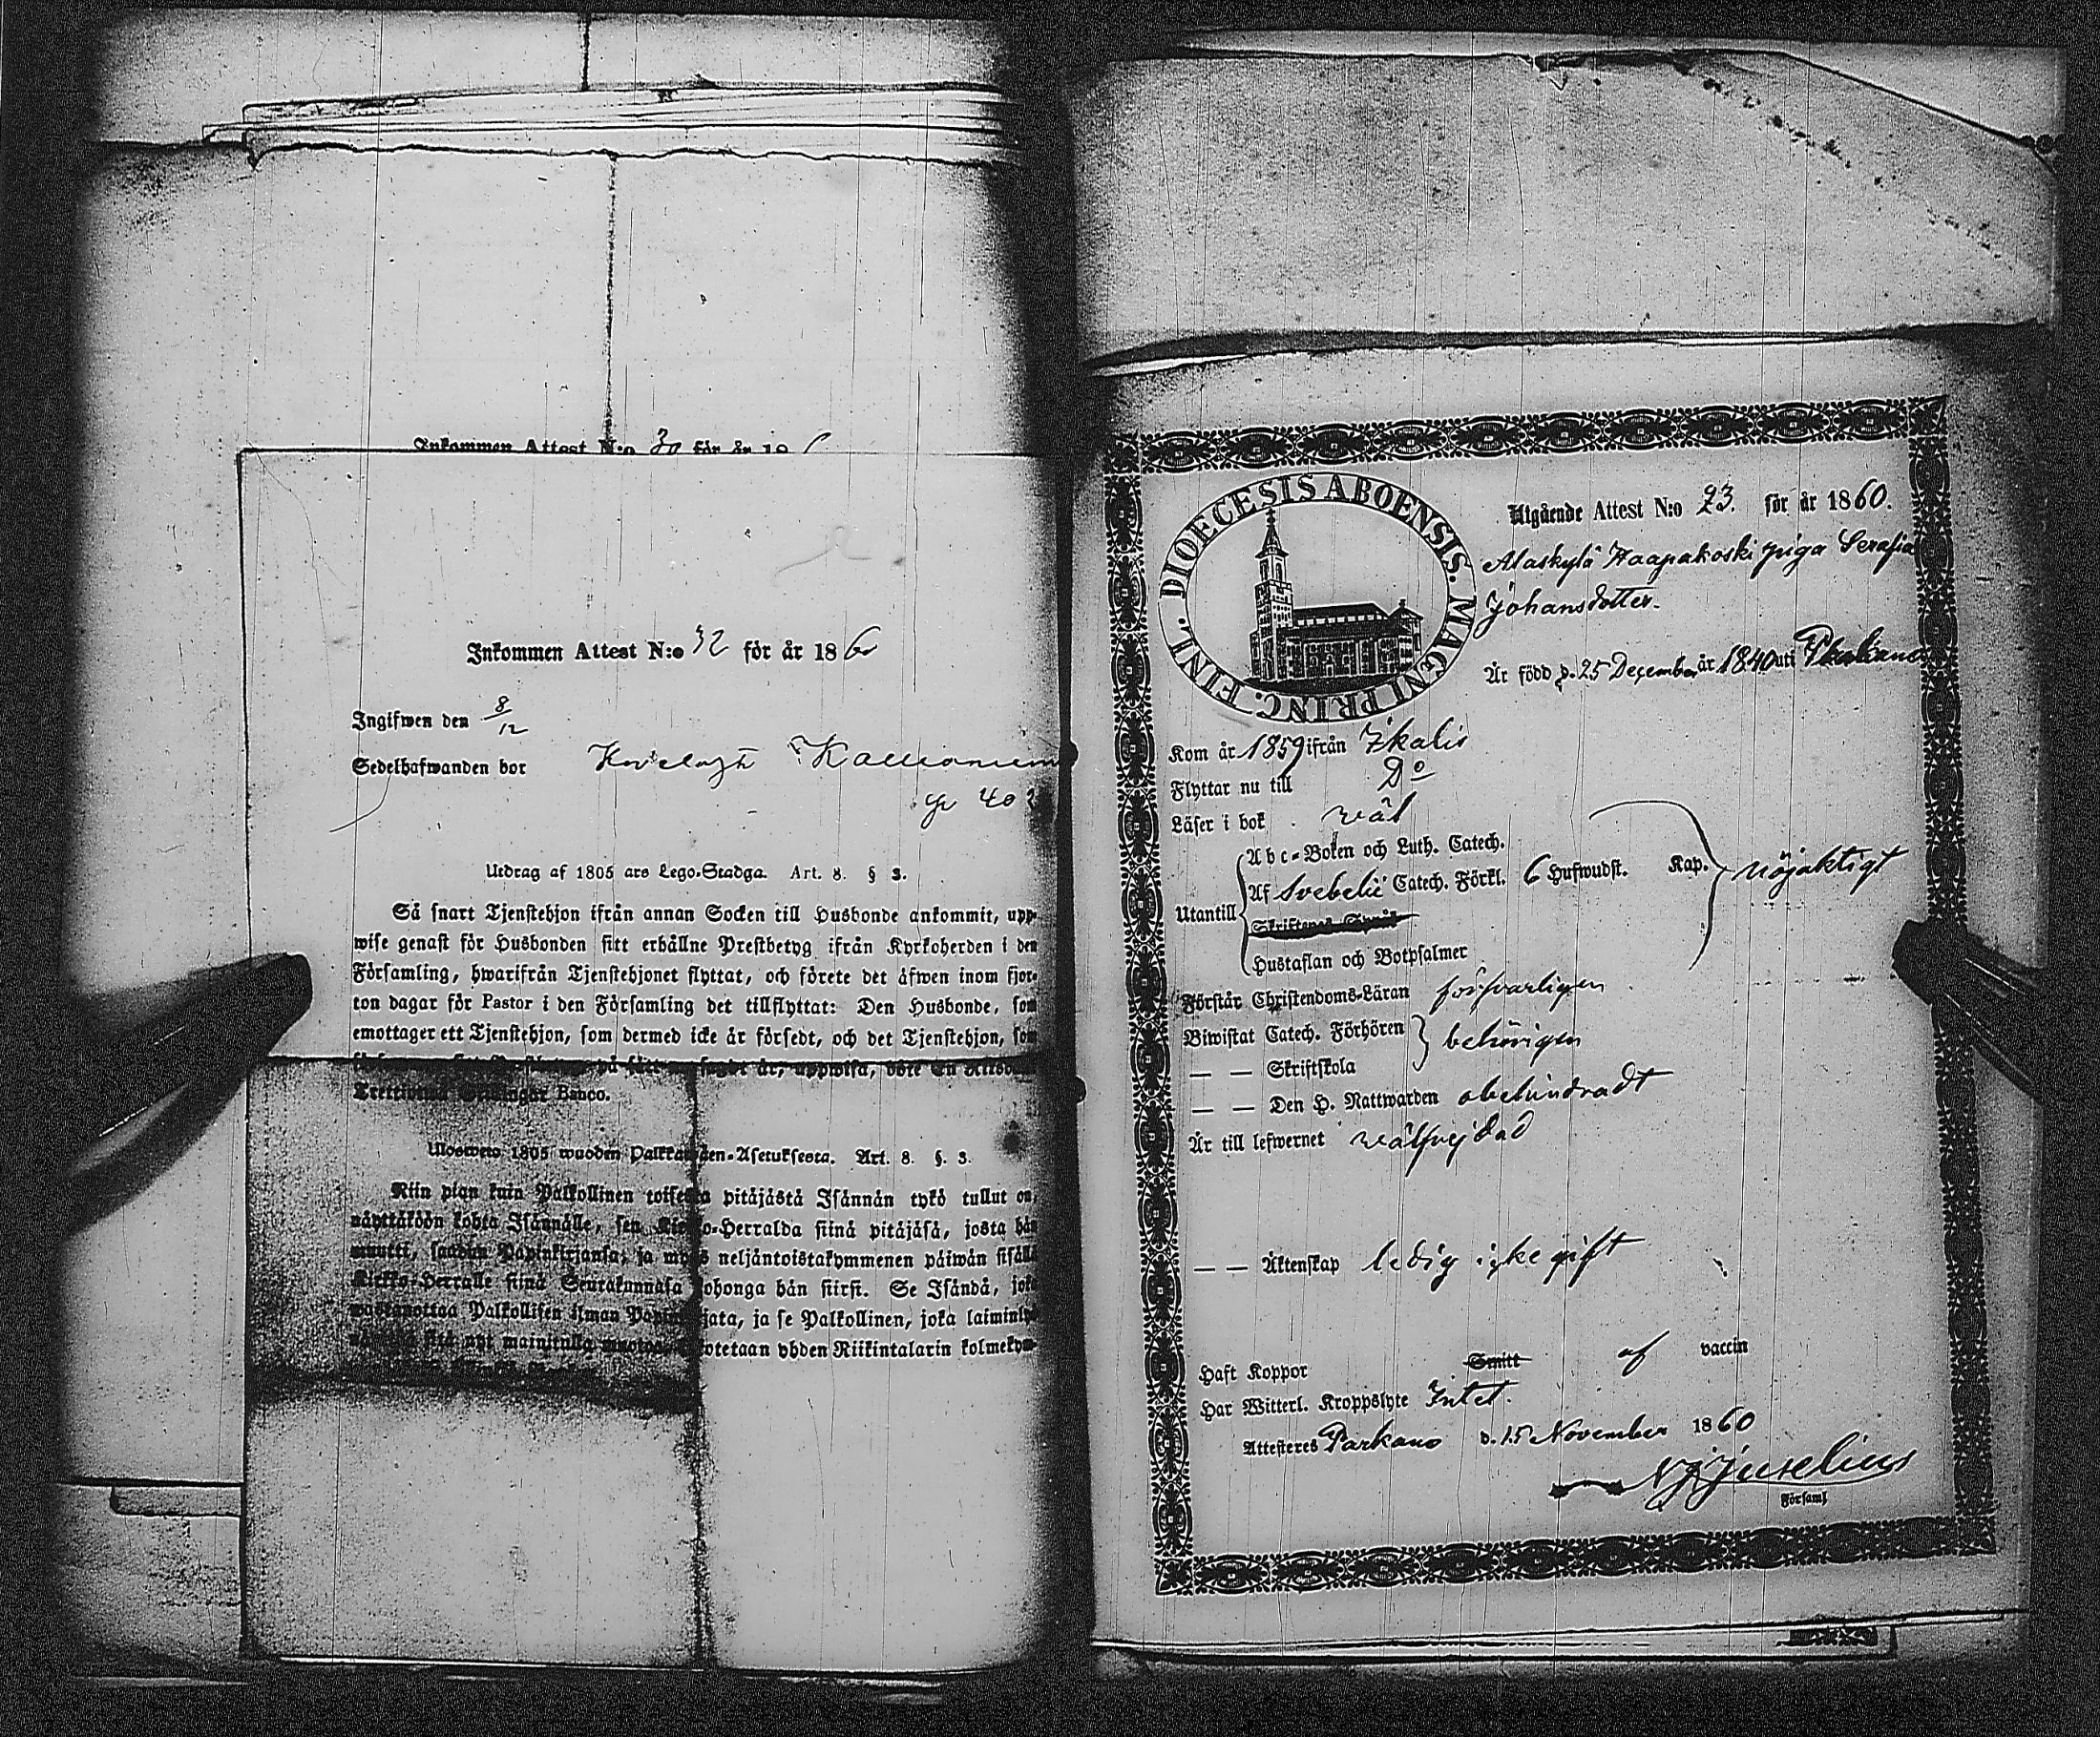 Inkommen Attest N:o 30 för år 186
Inkommen Attest N:o 32 för år 1860
Ingifwen den 8/12
Sedelhafwanden bor
Utdrag af 1805 års Lego-Stadga. Art. 8. § 3.
Så snart Tjenstehjon ifrån annan Socken till Husbonde ankommit, upp-
wise genast för Husbonden sitt erhållne Prestbetyg ifrån Kyrkoherden i den
Församling, hwarifrån Tjenstehjonet flyttat, och förete det äfwen inom fjor-
ton dagar för Pastor i den Församling det tillflyttat: Den Husbonde, som
emottager ett Tjenstehjon, som dermed icke är försedt, och det Tjenstehjon, som
på sätt sagdt är, uppwisa, böte En Riksd.
Banco.
Ulosweto 1805 wuoden Palkkawäen-Asetuksesta. Art. 8. §. 3.
Niin pian kuin Palkollinen toisesta pitäjästä Isännän tykö tullut on,
näyttäköön kohta Isännälle, sen Kirkko-Herralda siinä pitäjäsä, josta hän
muutti, saadun Papinkirjansa; ja myös neljäntoistakymmenen päiwän sisällä
Kirkko-Herralle siinä Seurakunnasa johonga hän siirsi. Se Isändä, joka
wastanottaa Palkollisen ilman Papinkirjata, ja se Palkollinen, joka laiminlyö
näyttää sitä nyt mainitulla muotoa, sakotetaan yhden Riikintalarin kolmekym-
DIOECESIS ABOENSIS. MAGNI PRINC. FINL.
Utgående Attest N:o 23. för år 1860.
Alaskylä Haapakoski piga Serafia
Johansdotter.
Är född d. 25 December år 1840 uti
Kom år 1859 ifrån Ikalis
Flyttar nu till Do
Läser i bok wäl
Utantill
Abc-Boken och Luth. Catech.
Af Svebelii Catech. Förkl. 6 Hufwudst. Kap. nöjaktigt
Skriftenes Språk
Hustaflan och Botpsalmer
Förstår Christendoms-Läran försvarligen
Biwistat Catech. Förhören behörigen
— — Skriftskola
— — Den H. Nattwarden obehindradt
Är till lefwernet wälfrejdad
— — Äktenskap ledig icke gift
Haft Koppor Smitt af vaccin
Har Witterl. Kroppslyte Intet.
Attesteres Parkano d. 15 November 1860
Juselius
Församl